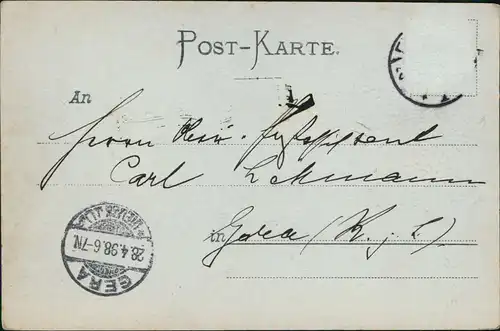 POST-KARTE.
An
Herrn
Carl Lehmann
in Gera (R. j. L)
GERA
28.4.98.6-7N.